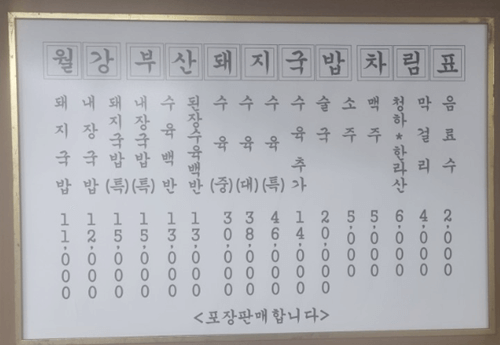 월강부산돼지국밥차림표
돼지국밥 11,000
내장국밥 12,000
돼지국밥(특) 15,000
내장국밥(특) 15,000
수육백반 13,000
된장수육백반 13,000
수육(중) 30,000
수육(대) 38,000
수육(특) 46,000
수육추가 14,000
술국 20,000
소주 5,000
맥주 5,000
청하*한라산 6,000
막걸리 4,000
음료수 2,000
<포장판매합니다>